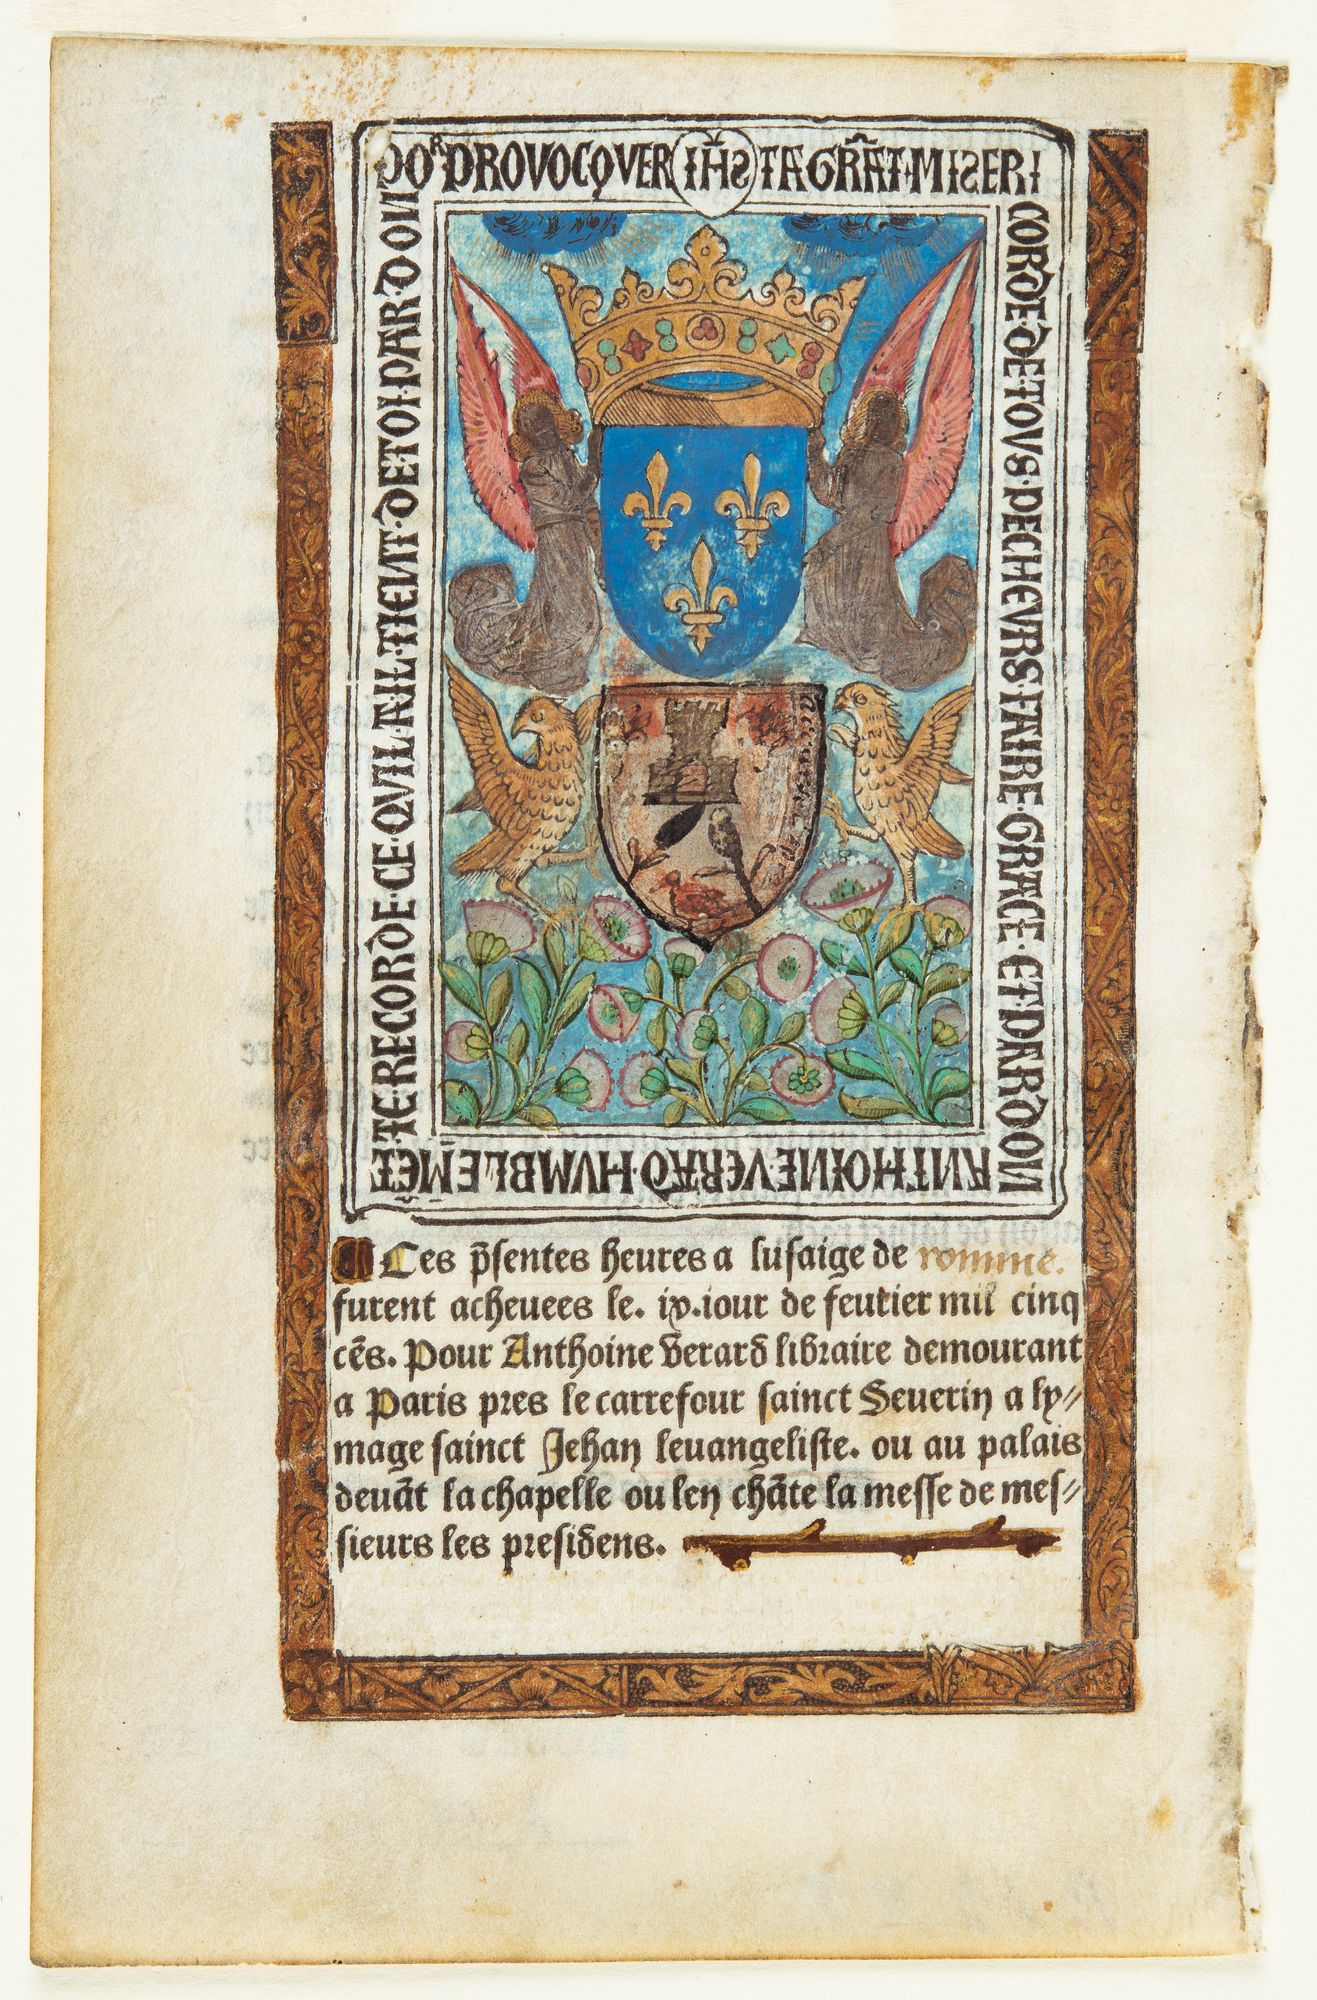 POᴿ PROVOCQVER IH̄S TA GRÃT MISERI
CORDE·DE·TOVS·PECHEVRS·FAIRE·GRACE·ET·PARDON
ANTHOINE·VERAD·HVMBLEMẼT
TE·RECORDE·CE·QVIL·A·IL·TIENT·DE·TOI·PAR·DON
Ces p̃sentes heures a lusaige de romme.
furent acheuees le. ix. iour de feurier mil cinq
cẽs. Pour Anthoine Verard libraire demourant
a Paris pres le carrefour sainct Seuerin a ly⸗
mage sainct Jehan leuangeliste. ou au palais
deuãt la chapelle ou len chãte la messe de mes⸗
sieurs les presidens.